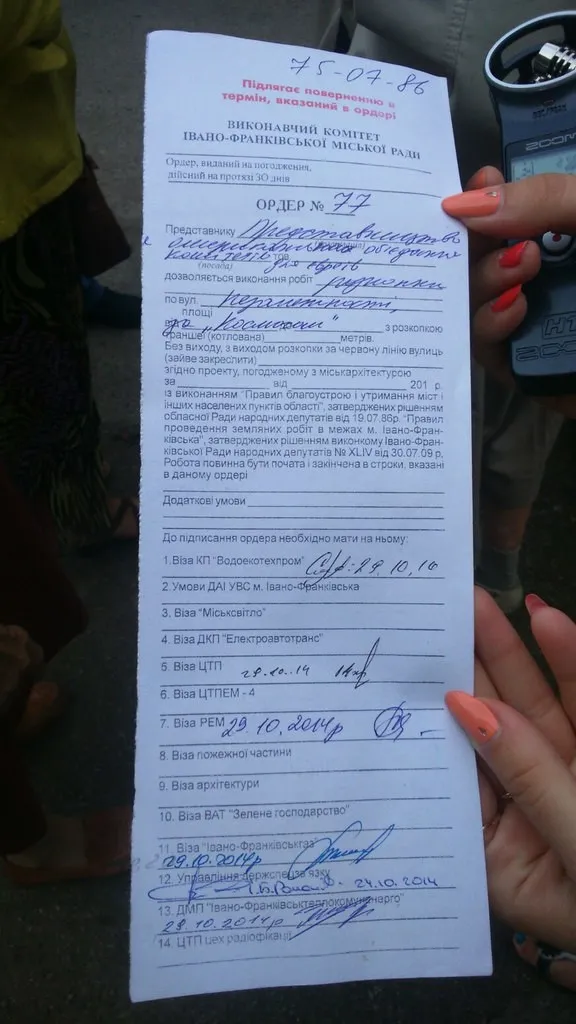 75-07-86
Підлягає поверненню в
термін, вказаний в ордері
ВИКОНАВЧИЙ КОМІТЕТ
ІВАНО-ФРАНКІВСЬКОЇ МІСЬКОЇ РАДИ
Ордер, виданий на погодження,
дійсний на протязі 30 днів
ОРДЕР № 77
Представнику Представництво
(посада)
дозволяється виконання робіт
по вул. Незалежності,
площі
"Космосом" з розкопкою
траншеї (котлована) метрів.
Без виходу, з виходом розкопки за червону лінію вулиць
(зайве закреслити)
згідно проекту, погодженому з міськархітектурою
за від 201 р.
із виконанням "Правил благоустрою і утримання міст і
інших населених пунктів області", затверджених рішенням
обласної Ради народних депутатів від 19.07.86р. "Правил
проведення земляних робіт в межах м. Івано-Фран-
ківська", затверджених рішенням виконкому Івано-Фран-
ківської Ради народних депутатів № XLIV від 30.07.09 р.
Робота повинна бути почата і закінчена в строки, вказані
в даному ордері
Додаткові умови
До підписання ордера необхідно мати на ньому:
1.Віза КП "Водоекотехпром" 29.10.14
2.Умови ДАІ УВС м. Івано-Франківська
3. Віза "Міськсвітло"
4. Віза ДКП "Електроавтотранс"
5 Віза ЦТП 29.10.14
6. Віза ЦТПЕМ - 4
7. Віза РЕМ 29.10.2014р
8. Віза пожежної частини
9. Віза архітектури
10. Віза ВАТ "Зелене господарство"
11. Віза "Івано-Франківськгаз"
29.10.2014р
12. Управління держспецзв'язку
24.10.2014
13. ДМП "Івано-Франківськтеплокомуненерго"
29.10.2014р
14 ЦТП цех радіофікації
ZOOM